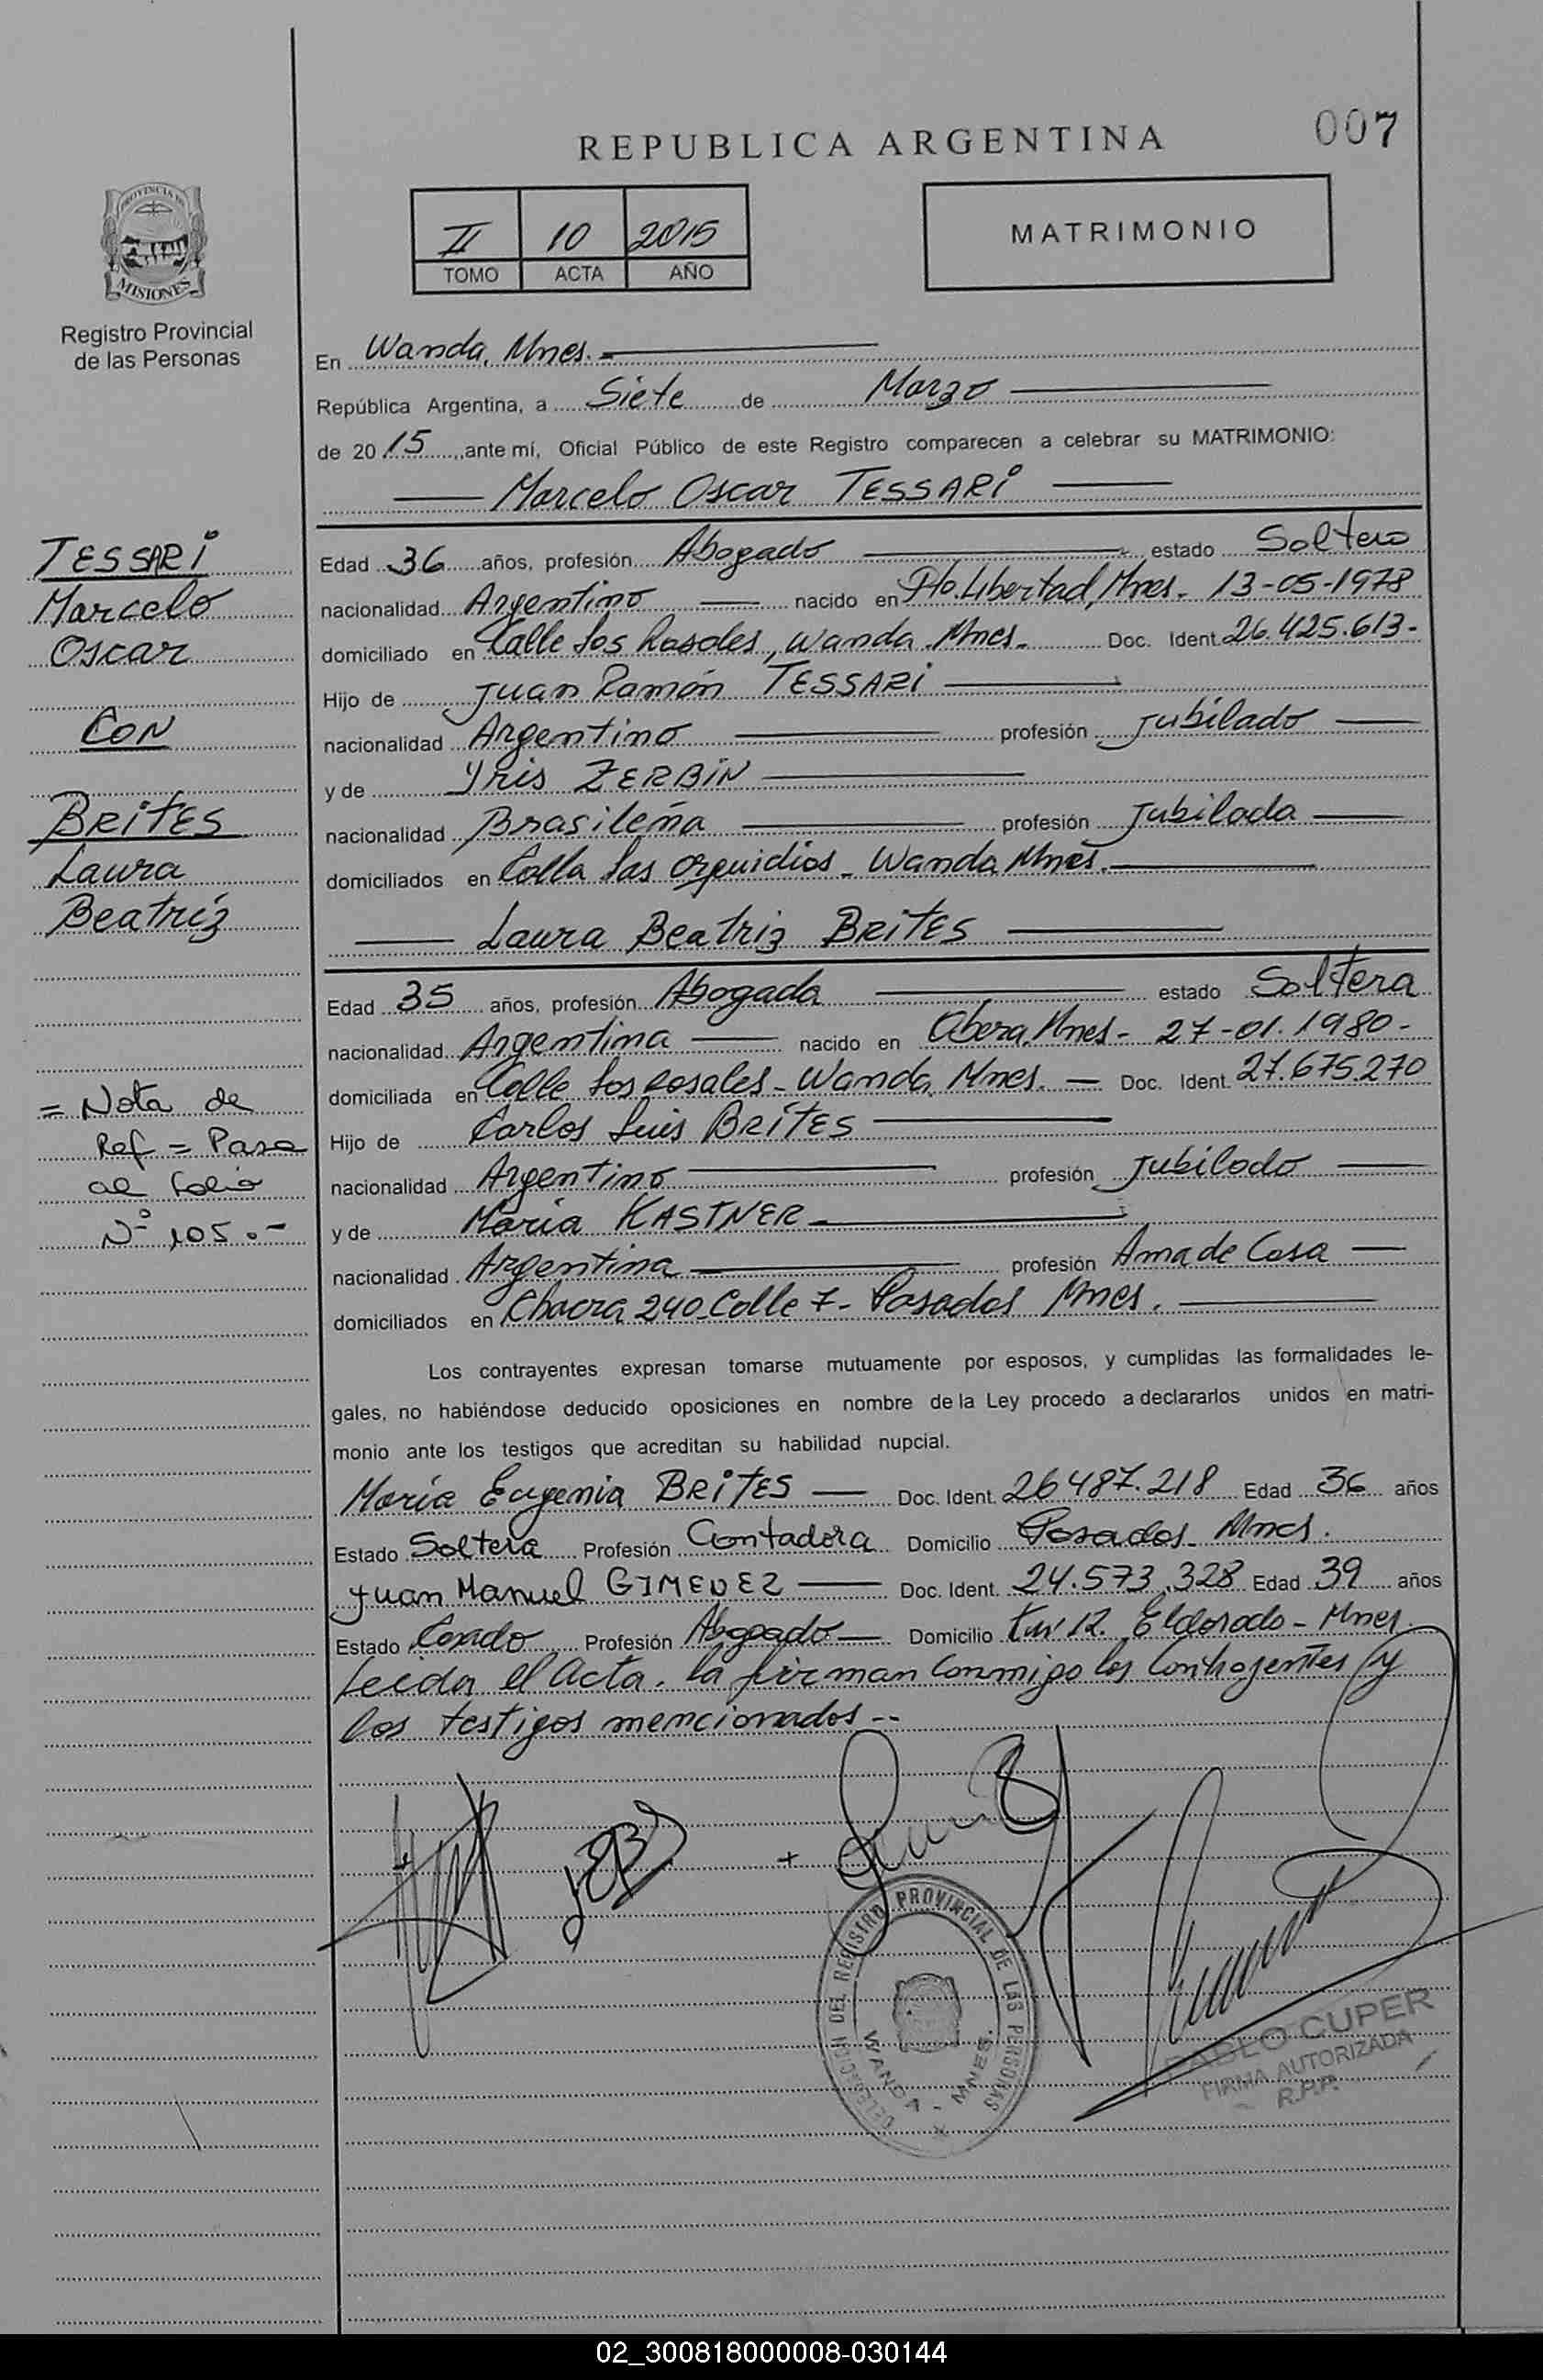 REPUBLICA ARGENTINA
007
II 10 2015
TOMO ACTA AÑO
MATRIMONIO
PROVINCIA DE
MISIONES
Registro Provincial
de las Personas
En Wanda, Mnes.-
República Argentina, a Siete de Marzo
de 20 15, ante mí, Oficial Público de este Registro comparecen a celebrar su MATRIMONIO:
Marcelo Oscar TESSARI
TESSARI
Marcelo
Oscar
CON
BRITES
Laura
Beatriz
= Nota de
Ref = Pasa
al Folio
N° 105.-
Edad 36 años, profesión Abogado estado Soltero
nacionalidad Argentino nacido en Pto. Libertad, Mnes. 13-05-1978
domiciliado en Calle Los Rosales, Wanda, Mnes. Doc. Ident. 26.425.613-
Hijo de Juan Ramón TESSARI
nacionalidad Argentino profesión Jubilado
y de Yris ZERBIN
nacionalidad Brasileña profesión Jubilada
domiciliados en Calle Las Orquidias - Wanda Mnes.
Laura Beatriz BRITES
Edad 35 años, profesión Abogada estado Soltera
nacionalidad Argentina nacido en Obera, Mnes- 27-01-1980-
domiciliada en Calle Los Rosales - Wanda, Mnes. Doc. Ident. 27.675.270
Hijo de Carlos Luis BRITES
nacionalidad Argentino profesión Jubilado
y de Maria KASTNER
nacionalidad Argentina profesión Ama de Casa
domiciliados en Chacra 240-Calle 7- Posadas Mnes.
Los contrayentes expresan tomarse mutuamente por esposos, y cumplidas las formalidades le-
gales, no habiéndose deducido oposiciones en nombre de la Ley procedo a declararlos unidos en matri-
monio ante los testigos que acreditan su habilidad nupcial.
María Eugenia BRITES Doc. Ident. 26487.218 Edad 36 años
Estado Soltera Profesión Contadora Domicilio Posadas- Mnes.
Juan Manuel GIMENEZ Doc. Ident. 24.573.328 Edad 39 años
Estado Casado Profesión Abogado Domicilio Km 12. Eldorado - Mnes.
Leida el Acta, la firman conmigo los Contrayentes y
los testigos mencionados --
DELEGACION DEL REGISTRO PROVINCIAL DE LAS PERSONAS
WANDA - MNES.
PABLO CUPER
FIRMA AUTORIZADA
R.P.P.
02_300818000008-030144